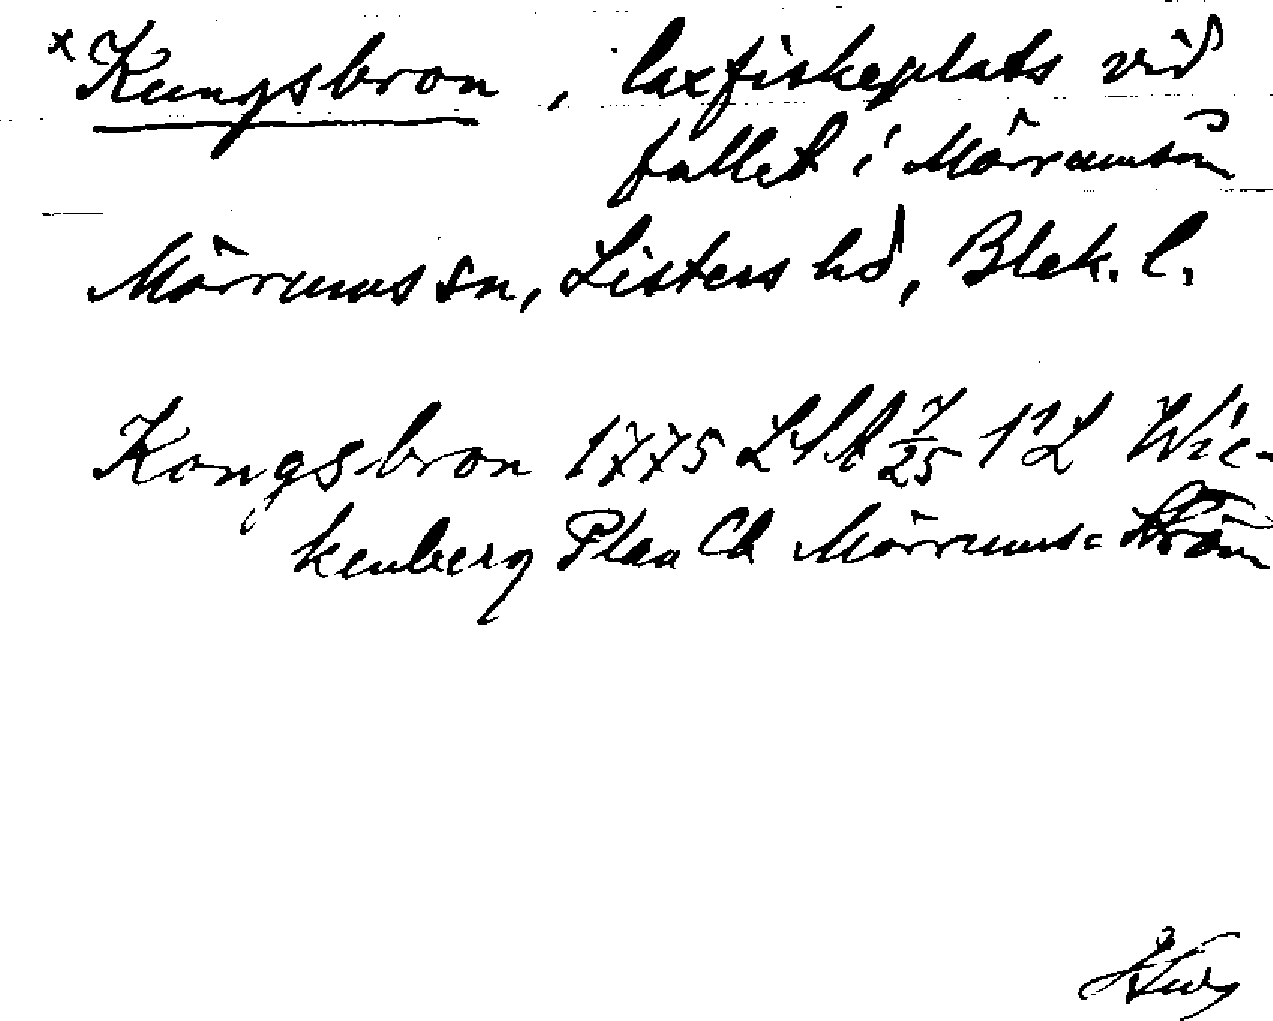 x Kungsbron, laxfiskeplats vid
fallet i Mörrumsån
Mörrums sn, Listers hd, Blek. l.
Kongsbron 1775 LSA 7/25 1:2 Wic-
kenberg Plan Ch Mörrums=Ström